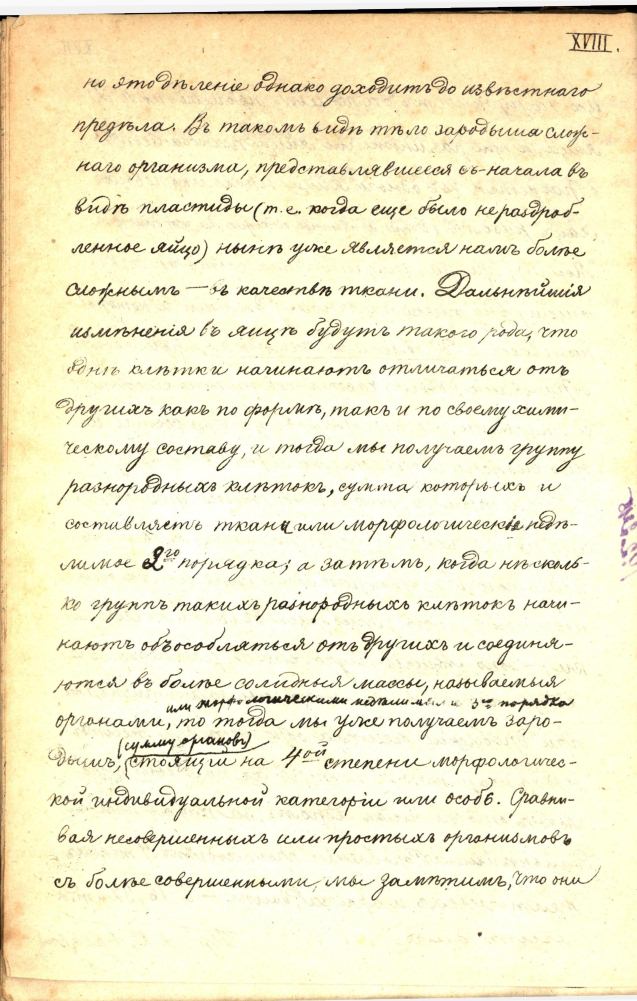 XVIII.
но это дѣленіе однако доходитъ до извѣстнаго
предѣла. Въ такомъ видѣ тѣло зародыша слож-
наго организма, представлявшееся въ-начала въ
видѣ пластиды (т.е. когда еще было не раздроб-
ленное яйцо) нынѣ уже является намъ болѣе
сложнымъ — въ качествѣ ткани. Дальнѣйшія
измѣненія въ яицѣ будутъ такого рода, что
однѣ клѣтки начинаютъ отличаться отъ
другихъ какъ по формѣ, такъ и по своему хими-
ческому составу, и тогда мы получаемъ группу
разнородныхъ клѣтокъ, сумма которыхъ и
составляетъ ткани или морфологическіе недѣ-
лимое 2го порядка; а затѣмъ, когда нѣсколь-
ко группъ такихъ разнородныхъ клѣтокъ начи-
наютъ обособляться отъ другихъ и соединя-
ются въ болѣе солидныя массы, называемыя
или морфологическими недѣлимыми 3го порядка
органами, то тогда мы уже получаемъ заро-
(сумму органовъ)
дышъ, стоящій на 4ой степени морфологичес-
кой индивидуальной категоріи или особь. Сравни-
вая несовершенныхъ или простыхъ организмовъ
съ болѣе совершенными, мы замѣтимъ, что они